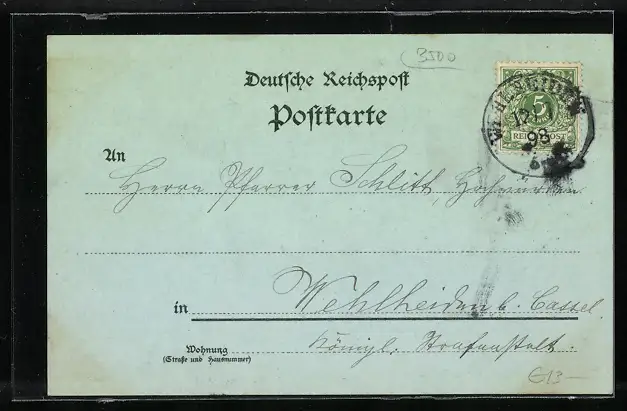 3500
Deutsche Reichspost
Postkarte
5
REICHSPOST
98
An
Herrn Pfarrer Schlitt, Hochwürden
in Wehlheiden b. Cassel
Wohnung
(Straße und Hausnummer)
Königl. Strafanstalt.
€13-